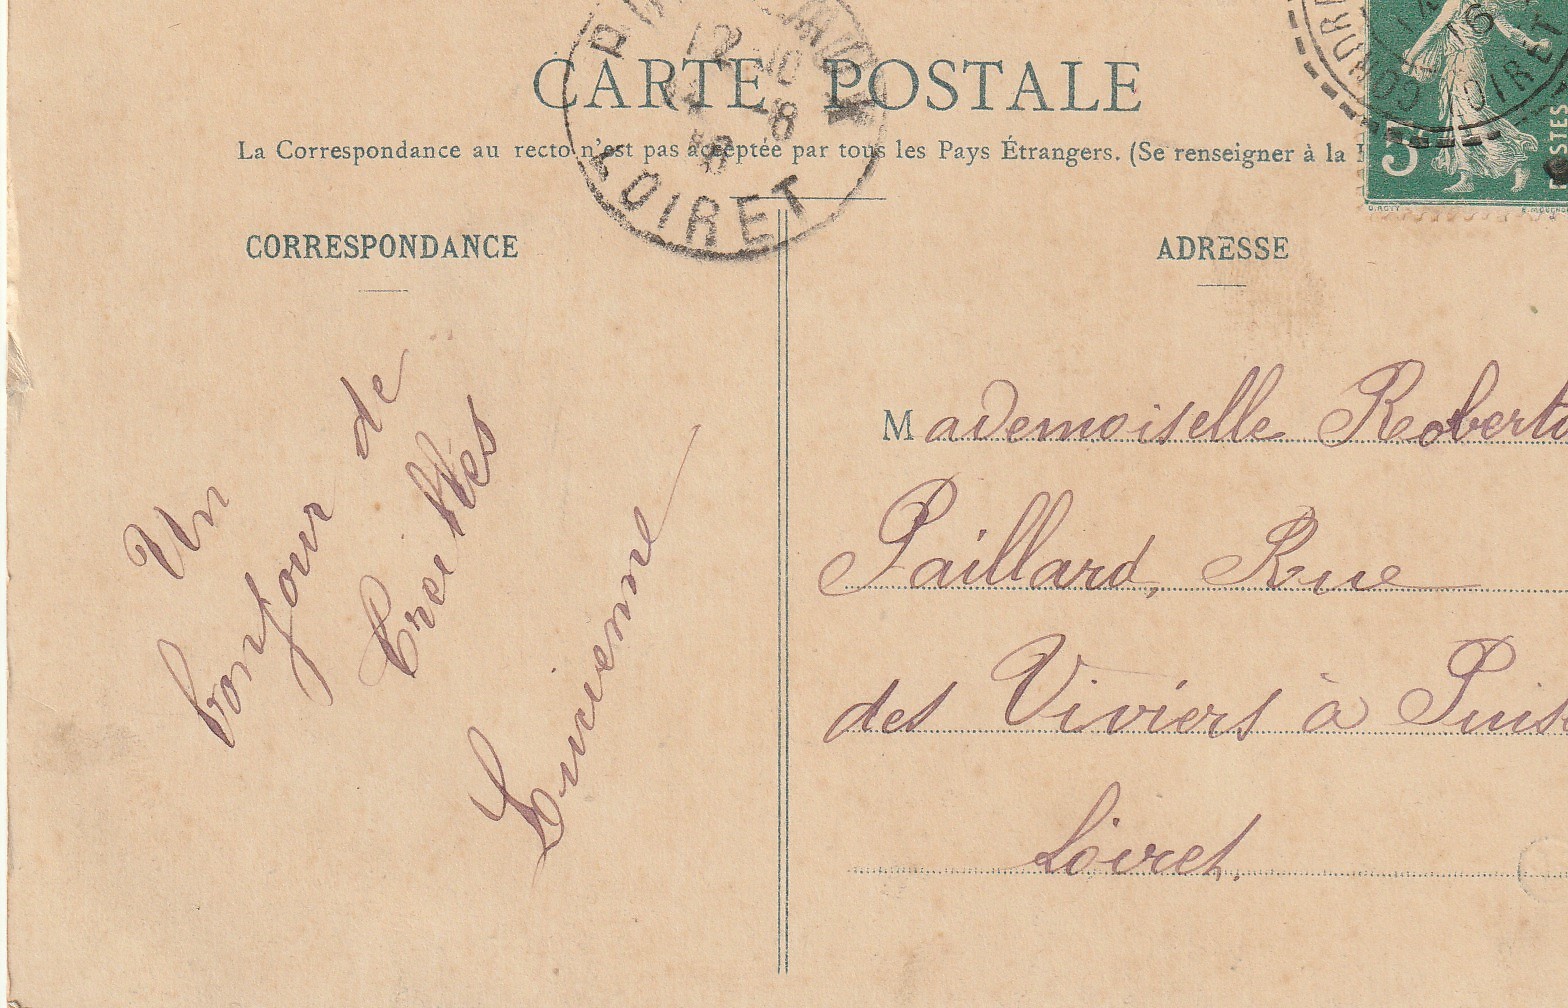 CARTE POSTALE
La Correspondance au recto n'est pas acceptée par tous les Pays Étrangers. (Se renseigner à la
CORRESPONDANCE
ADRESSE
Un
bonjour de
Lucienne
Mademoiselle Roberte
Paillard, Rue
des Viviers à Puis
Loiret.
12 10
8
LOIRET
16
LOIRET
5